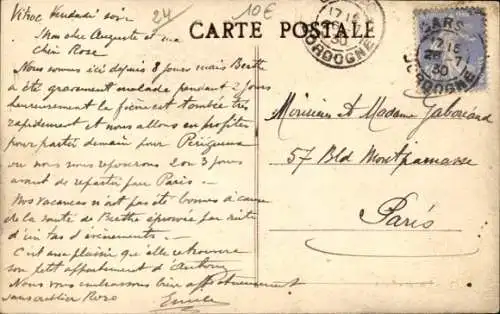 Vitrac Vendredi soir
24
10€
CARTE POSTALE
Mon cher Auguste et ma
chère Rose
Nous sommes ici depuis 8 jours mais Berthe
a été gravement malade pendant 2 jours
heureusement la fièvre est tombée très
rapidement et nous allons en profiter
pour partir demain pour Périgueux
où nous nous reposerons 2 ou 3 jours
avant de repartir pour Paris -
Nos vacances n'ont pas été bonnes à cause
de la santé de Berthe éprouvée par suite
d'un tas d'événements.
C'est avec plaisir que elle retrouvera
son petit appartement d'
Nous vous embrassons bien affectueusement
sans oublier Roro
17 15
30
DORDOGNE
17 15
7
30
DORDOGNE
Monsieur et Madame
57 Bld Montparnasse
Paris